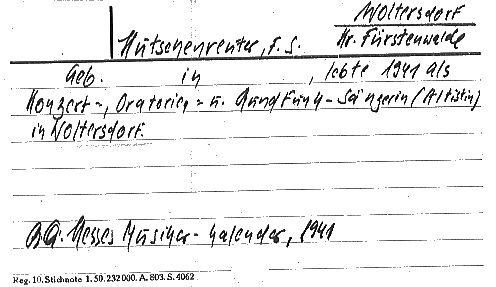 Woltersdorf
Hutschenreuter, F. S. Kr. Fürstenwalde
Geb. in , lebte 1941 als
Konzert-, Oratorien- u. Rundfunk-Sängerin (Altistin)
in Woltersdorf.
Hesses Musiker-Kalender, 1941
Reg. 10. Stichnote 1. 50. 232000. A. 803. S. 4062